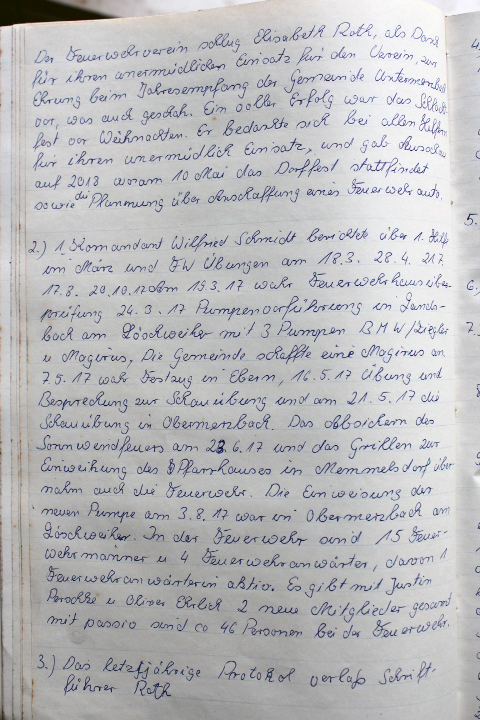 Der Feuerwehrverein schlug Elisabeth Roth, als Dank
für ihren unermüdlichen Einsatz für den Verein, zur
Ehrung beim Jahresempfang der Gemeinde Untermerzbach
vor, was auch geschah. Ein voller Erfolg war das Schlacht
fest vor Weihnachten. Er bedankte sich bei allen Helfern
für ihren unermüdlich Einsatz, und gab Ausschau
auf 2018 woram 10 Mai das Dorffest stattfindet
sowie die Planmung über Anschaffung eines Feuerwehrauto.
2.) 1. Komandant Wilfried Schmidt berichtete über 1. Hilfe
im März und FW Übungen am 18.3. 28.4. 21.7.
17.8. 20.10.17 Am 19.3.17 wahr Feuerwehrhausüber
prüfung 24.3.17 Pumpenvorführung in Lands-
bach am Löschweiher mit 3 Pumpen BMW/Ziegler
u Magirus, Die Gemeinde schaffte eine Magirus an
7.5.17 wahr Festzug in Ebern, 16.5.17 Übung und
Besprechung zur Schauübung und am 21.5.17 die
Schauübung in Obermerzbach. Das Absichern des
Sonnwendfeuers am 23.6.17 und das Grillen zur
Einweihung des Pfarrhauses in Memmelsdorf über
nahm auch die Feuerwehr. Die Einweisung der
neuen Pumpe am 3.8.17 war in Obermerzbach am
Löschweiher. In der Feuerwehr sind 15 Feuer-
wehrmänner u 4 Feuerwehranwärter, davon 1
Feuerwehranwärterin aktiv. Es gibt mit Justin
Perschke u Oliver Ehrlich 2 neue Mitglieder gesamt
mit passiv sind ca 46 Personen bei der Feuerwehr.
3.) Das letztjährige Protokol verlaß Schrift-
führer Roth
4.
5.
6.
7.